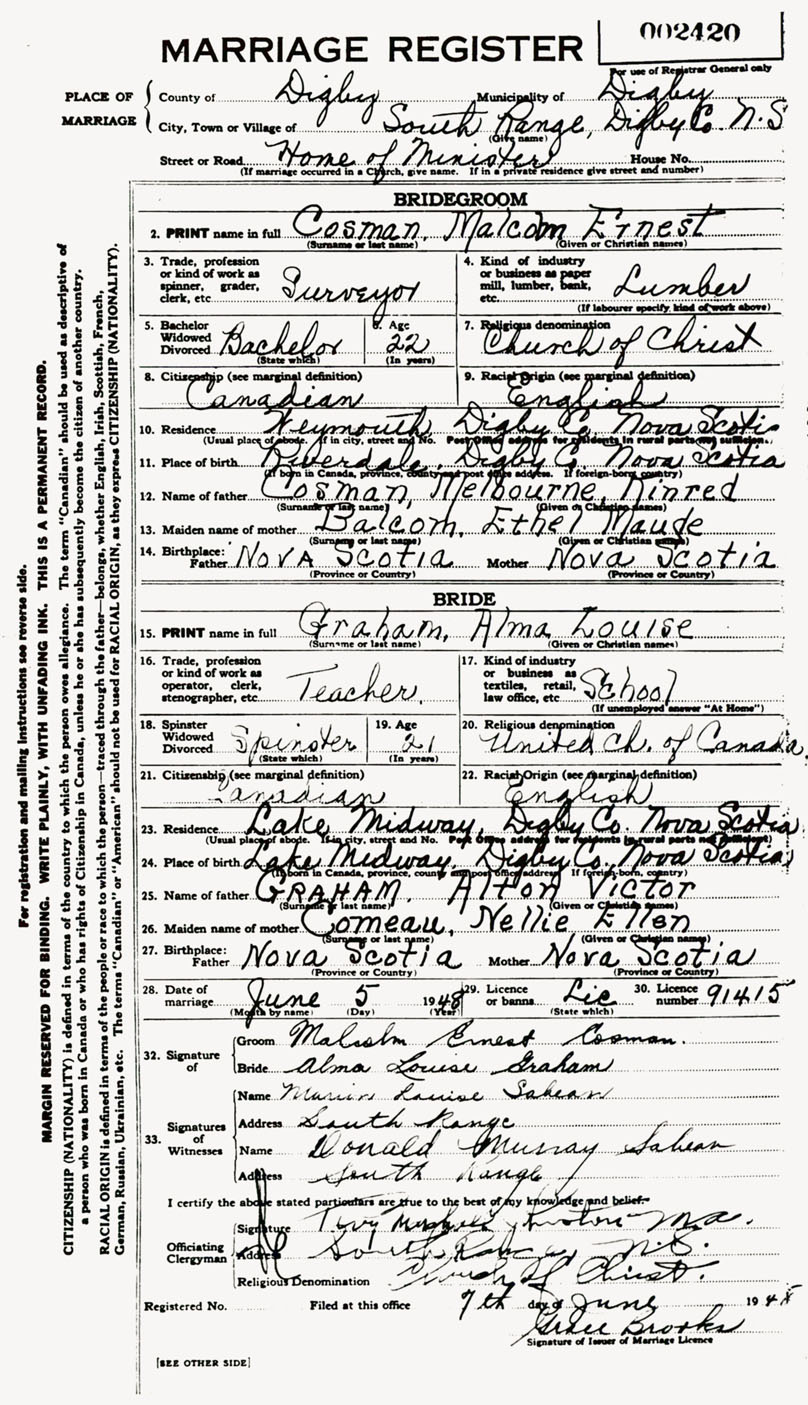 002420
MARRIAGE REGISTER
For use of Registrar General only
PLACE OF MARRIAGE
County of Digby Municipality of Digby
City, Town or Village of South Range, Digby Co. N.S
(Give name)
Street or Road Home of Minister House No.
(If marriage occurred in a Church, give name. If in a private residence give street and number)
BRIDEGROOM
2. PRINT name in full Cosman, Malcolm Ernest
(Surname or last name) (Given or Christian names)
3. Trade, profession or kind of work as spinner, grader, clerk, etc. Surveyor
4. Kind of industry or business as paper mill, lumber, bank, etc. Lumber
(If labourer specify kind of work above)
5. Bachelor Widowed Divorced Bachelor (State which)
6. Age 22 (In years)
7. Religious denomination Church of Christ
8. Citizenship (see marginal definition) Canadian
9. Racial Origin (see marginal definition) English
10. Residence Weymouth, Digby Co. Nova Scotia
(Usual place of abode. If in city, street and No. Post Office address for residents in rural parts not sufficient.)
11. Place of birth Riverdale, Digby Co. Nova Scotia
(If born in Canada, province, county and post office address. If foreign-born, country)
12. Name of father Cosman, Melbourne, Ninred
(Surname or last name) (Given or Christian names)
13. Maiden name of mother Balcom, Ethel Maude
(Surname or last name) (Given or Christian names)
14. Birthplace: Father Nova Scotia Mother Nova Scotia
(Province or Country) (Province or Country)
BRIDE
15. PRINT name in full Graham, Alma Louise
(Surname or last name) (Given or Christian names)
16. Trade, profession or kind of work as operator, clerk, stenographer, etc. Teacher.
17. Kind of industry or business as textiles, retail, law office, etc. School
(If unemployed answer "At Home")
18. Spinster Widowed Divorced Spinster (State which)
19. Age 21 (In years)
20. Religious denomination United Ch. of Canada.
21. Citizenship (see marginal definition) Canadian
22. Racial Origin (see marginal definition) English
23. Residence Lake Midway, Digby Co. Nova Scotia
(Usual place of abode. If in city, street and No. Post Office address for residents in rural parts not sufficient)
24. Place of birth Lake Midway, Digby Co, Nova Scotia
(If born in Canada, province, county and post office address. If foreign-born, country)
25. Name of father GRAHAM, Alton Victor
(Surname or last name) (Given or Christian names)
26. Maiden name of mother Comeau, Nellie Ellen
(Surname or last name) (Given or Christian names)
27. Birthplace: Father Nova Scotia Mother Nova Scotia
(Province or Country) (Province or Country)
28. Date of marriage June 5 1948 29. Licence or banns Lic 30. Licence number 91415
(Month by name) (Day) (Year) (State which)
32. Signature of
Groom Malcolm Ernest Cosman.
Bride Alma Louise Graham
33. Signatures of Witnesses
Name Marion Louise Sabean
Address South Range
Name Donald Murray Sabean
Address South Range
I certify the above stated particulars are true to the best of my knowledge and belief.
Officiating Clergyman
Signature M.A.
Address South Range, N.S.
Religious Denomination Church of Christ.
Registered No. Filed at this office 7th day of June 1948
Grace Brooks
Signature of Issuer of Marriage Licence
[SEE OTHER SIDE]
For registration and mailing instructions see reverse side.
MARGIN RESERVED FOR BINDING. WRITE PLAINLY, WITH UNFADING INK. THIS IS A PERMANENT RECORD.
CITIZENSHIP (NATIONALITY) is defined in terms of the country to which the person owes allegiance. The term "Canadian" should be used as descriptive of
a person who was born in Canada or who has rights of Citizenship in Canada, unless he or she has subsequently become the citizen of another country.
RACIAL ORIGIN is defined in terms of the people or race to which the person—traced through the father—belongs, whether English, Irish, Scottish, French,
German, Russian, Ukrainian, etc. The terms "Canadian" or "American" should not be used for RACIAL ORIGIN, as they express CITIZENSHIP (NATIONALITY).